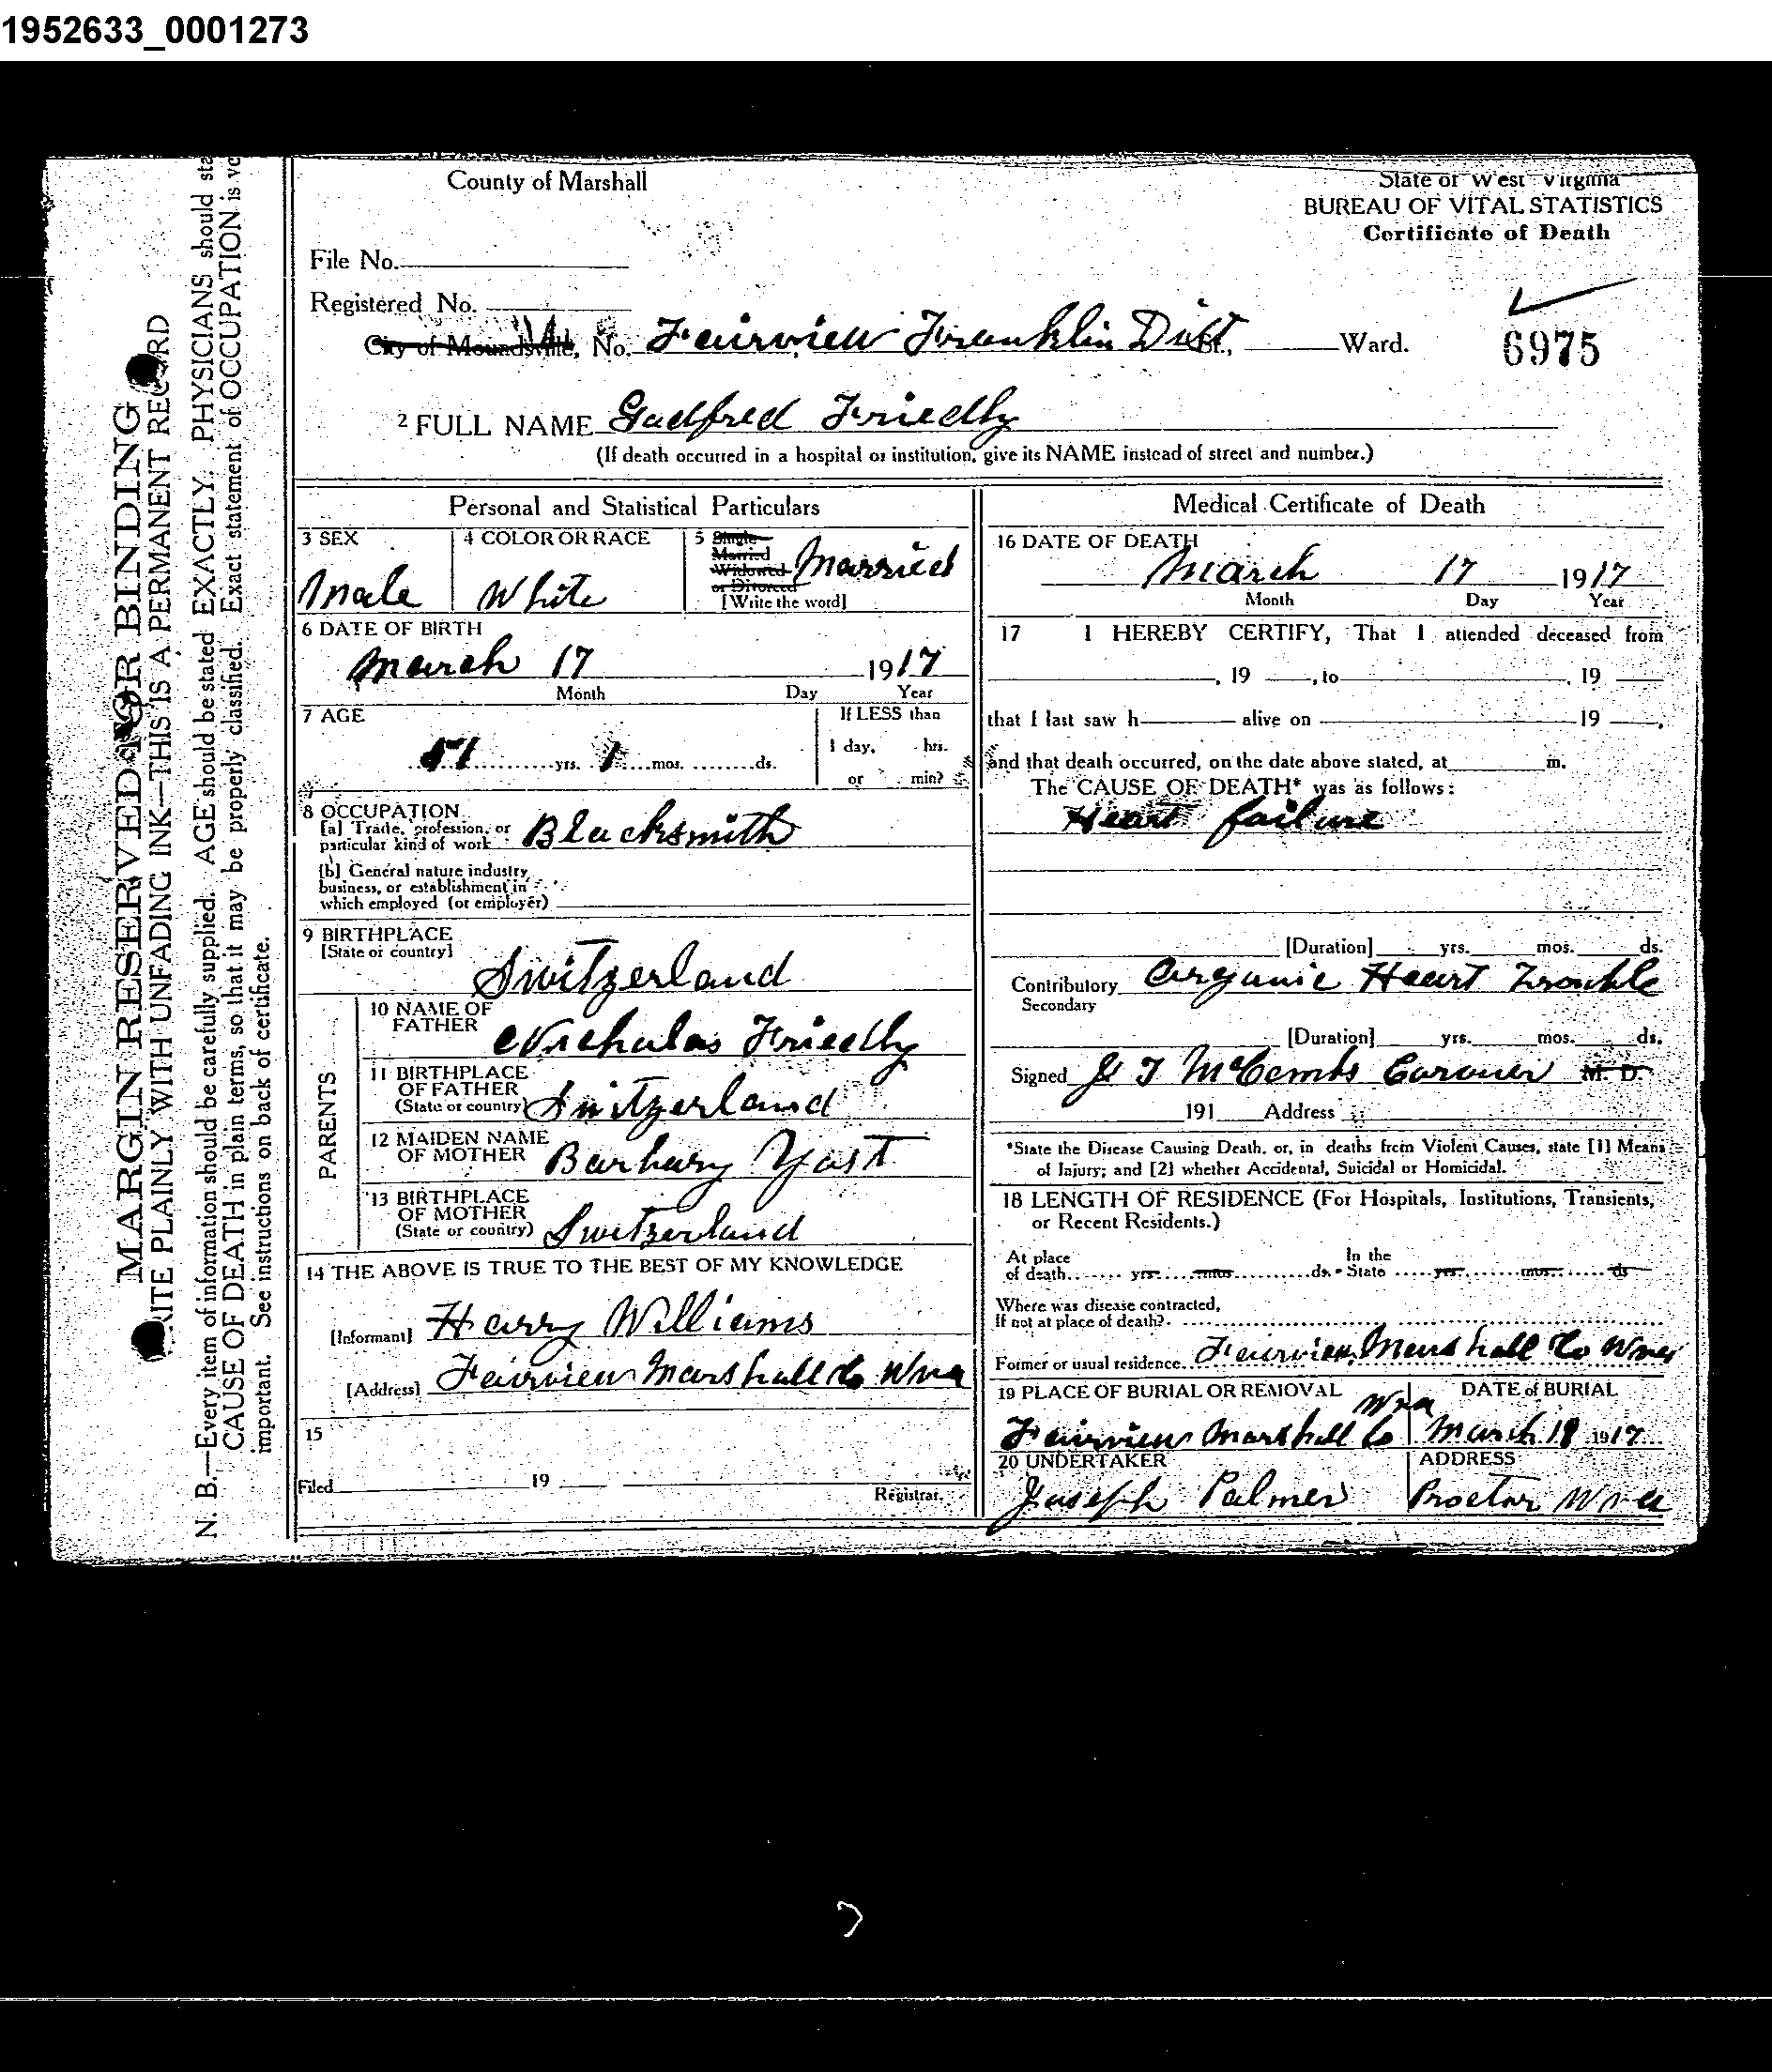 1952633_0001273
County of Marshall
State of West Virginia
BUREAU OF VITAL STATISTICS
Certificate of Death
File No.
Registered No.
City of Moundsville, No. Fairview Franklin Dist St., Ward.
6975
2 FULL NAME Godfred Friedly
(If death occurred in a hospital or institution, give its NAME instead of street and number.)
Personal and Statistical Particulars
3 SEX
Male
4 COLOR OR RACE
White
5 Single
Married
Widowed
or Divorced
Married
[Write the word]
6 DATE OF BIRTH
March 17 1917
Month Day Year
7 AGE
51 yrs. 1 mos. ds.
If LESS than
1 day, hrs.
or min?
8 OCCUPATION
[a] Trade, profession, or
particular kind of work Blacksmith
[b] General nature industry,
business, or establishment in
which employed (or employer)
9 BIRTHPLACE
[State or country]
Switzerland
PARENTS
10 NAME OF
FATHER
Nicholas Friedly
11 BIRTHPLACE
OF FATHER
(State or country) Switzerland
12 MAIDEN NAME
OF MOTHER Barbary Yost
13 BIRTHPLACE
OF MOTHER
(State or country) Switzerland
14 THE ABOVE IS TRUE TO THE BEST OF MY KNOWLEDGE
[Informant] Harry Williams
[Address] Fairview Marshall Co Wva
15
Filed 19
Registrar.
Medical Certificate of Death
16 DATE OF DEATH
March 17 1917
Month Day Year
17 I HEREBY CERTIFY, That I attended deceased from
, 19 , to , 19
that I last saw h alive on 19 ,
and that death occurred, on the date above stated, at m.
The CAUSE OF DEATH* was as follows:
Heart failure
[Duration] yrs. mos. ds.
Contributory Organic Heart Trouble
Secondary
[Duration] yrs. mos. ds.
Signed J T McCombs Coroner M. D.
191 Address
*State the Disease Causing Death, or, in deaths from Violent Causes, state [1] Means
of Injury; and [2] whether Accidental, Suicidal or Homicidal.
18 LENGTH OF RESIDENCE (For Hospitals, Institutions, Transients,
or Recent Residents.)
At place
of death yrs. mos. ds.
In the
State yrs. mos. ds
Where was disease contracted,
If not at place of death?
Former or usual residence. Fairview Marshall Co Wva
19 PLACE OF BURIAL OR REMOVAL
Fairview Marshall Co Wva
DATE of BURIAL
March 19 1917
20 UNDERTAKER
Joseph Palmer
ADDRESS
Proctor Wva
MARGIN RESERVED FOR BINDING
RITE PLAINLY WITH UNFADING INK—THIS IS A PERMANENT RECORD
N. B.—Every item of information should be carefully supplied. AGE should be stated EXACTLY. PHYSICIANS should sta
CAUSE OF DEATH in plain terms, so that it may be properly classified. Exact statement of OCCUPATION is ve
important. See instructions on back of certificate.